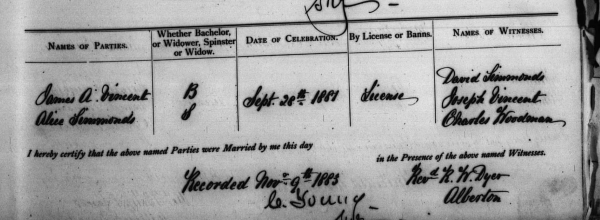 NAMES OF PARTIES.
Whether Bachelor, or Widower, Spinster or Widow.
DATE OF CELEBRATION.
By License or Banns.
NAMES OF WITNESSES.
James A. Vincent
Alice Simmonds
B
S
Sept. 28th 1881
License
David Simmonds
Joseph Vincent
Charles Woodman
I hereby certify that the above named Parties were Married by me this day
in the Presence of the above named Witnesses.
Recorded Nov. 9th 1883
C. Young
Revd R. W. Dyer
Alberton